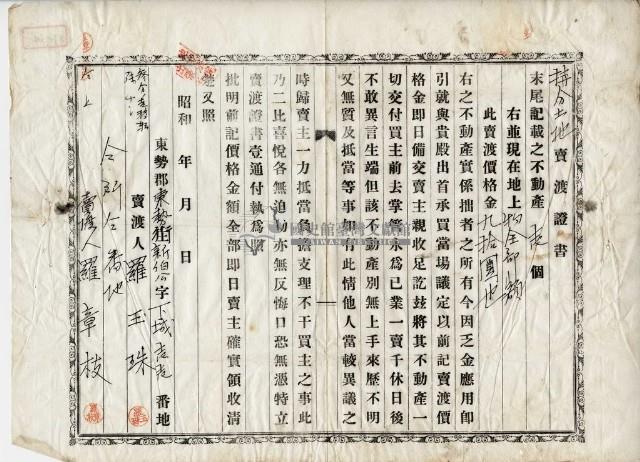 持分土地賣渡證書
末尾記載之不動產 壱 個
右並現在地上物全部
此賣渡價格金九拾圓也
右之不動產實係拙者之所有今因乏金應用卽
引就與貴殿出首承買當場議定以前記賣渡價
格金卽日備交賣主親收足訖玆將其不動產一
切交付買主前去掌管永爲己業一賣千休日後
不敢異言生端但該不動產別無上手來歷不明
又無質及抵當等事如有此情他人當較異議之
時歸賣主一力抵當負擔支理不干買主之事此
乃二比喜悅各無迫勒亦無反悔口恐無憑特立
賣渡證書壹通付執爲照
批明前記價格金額全部卽日賣主確實領收清
楚又照
昭和 年 月 日
東勢郡東勢街新伯公字下城 番地
賣渡人 羅玉珠
仝所仝番地
賣渡人 羅章枝